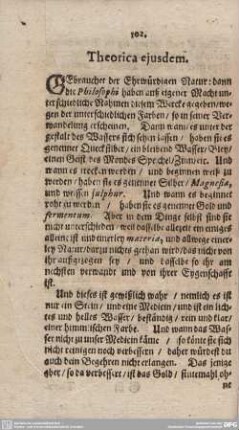 102.
Theorica ejusdem.
GEbraucher der Ehrwürdigen Natur: dann
die Philosophi haben auß eigener Macht un-
terschiedliche Nahmen diesem Wercke gegeben/ we-
gen der unterschiedlichen Farben/ so in seiner Ver-
wandelung erscheinen. Dann wann es unter der
gestalt des Wassers sich sehen lassen/ haben sie es
genennet Quecksilber/ ein bleibend Wasser/ Bley/
einen Geist des Mondes Speichel/ Und
wann es trocken worden/ und beginnen weiß zu
werden/ haben sie es genennet Silber/ Magnesia,
und weissen sulphur. Und wann es beginnet
roht zu werden/ haben sie es genennet Gold und
fermentum. Aber in dem Dinge selbst sind sie
nicht unterschieden/ weil dasselbe allezeit ein einiges
allein ist und einerley materia, und allwege einer-
ley Natur/ darzu nichts gethan wird/ das nicht von
ihr außgezogen sey/ und dasselbe so ihr am
nechsten verwand und von ihrer Eygenschafft
ist.
Und dieses ist gewißlich wahr/ nemlich es ist
nur ein Stein/ und eine Medicin/ und ist ein lich-
tes und helles Wasser/ beständig/ rein und klar/
einer himmlischen Farbe. Und wann das Was-
ser nicht zu unser Medicin käme/ so könte sie sich
nicht reinigen noch verbessern/ daher würdest du
auch dein Begehren nicht erlangen. Das jenige
aber/ so da verbessert/ ist das Gold/ sintemahl oh-
ne